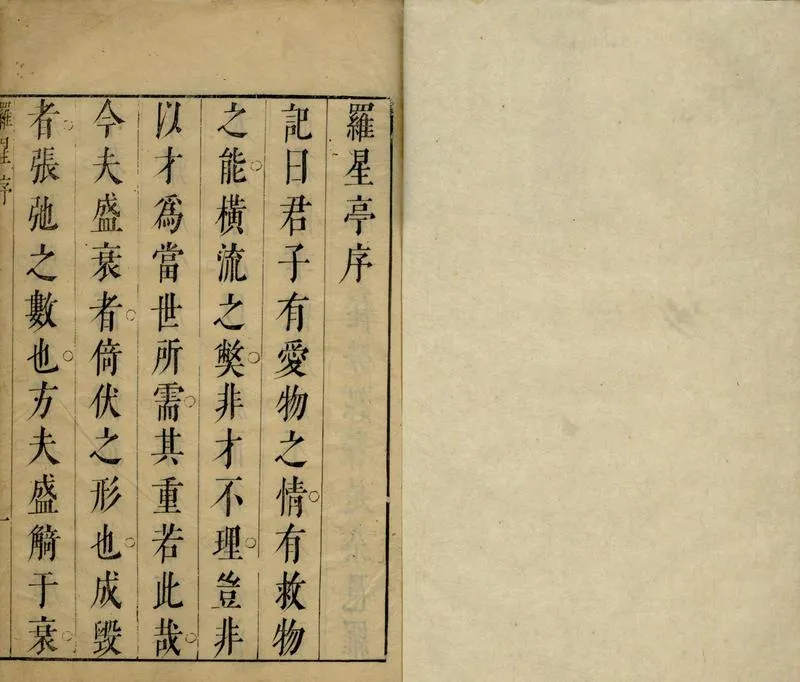 羅星亭序
記曰君子有愛物之情○有救物
之能○橫流之獘○非才不理○豈非
以才爲當世所需○其重若此哉○
今夫盛衰者○倚伏之形也○成毀
者○張弛之數也○方夫盛觭于衰○
羅星序
一